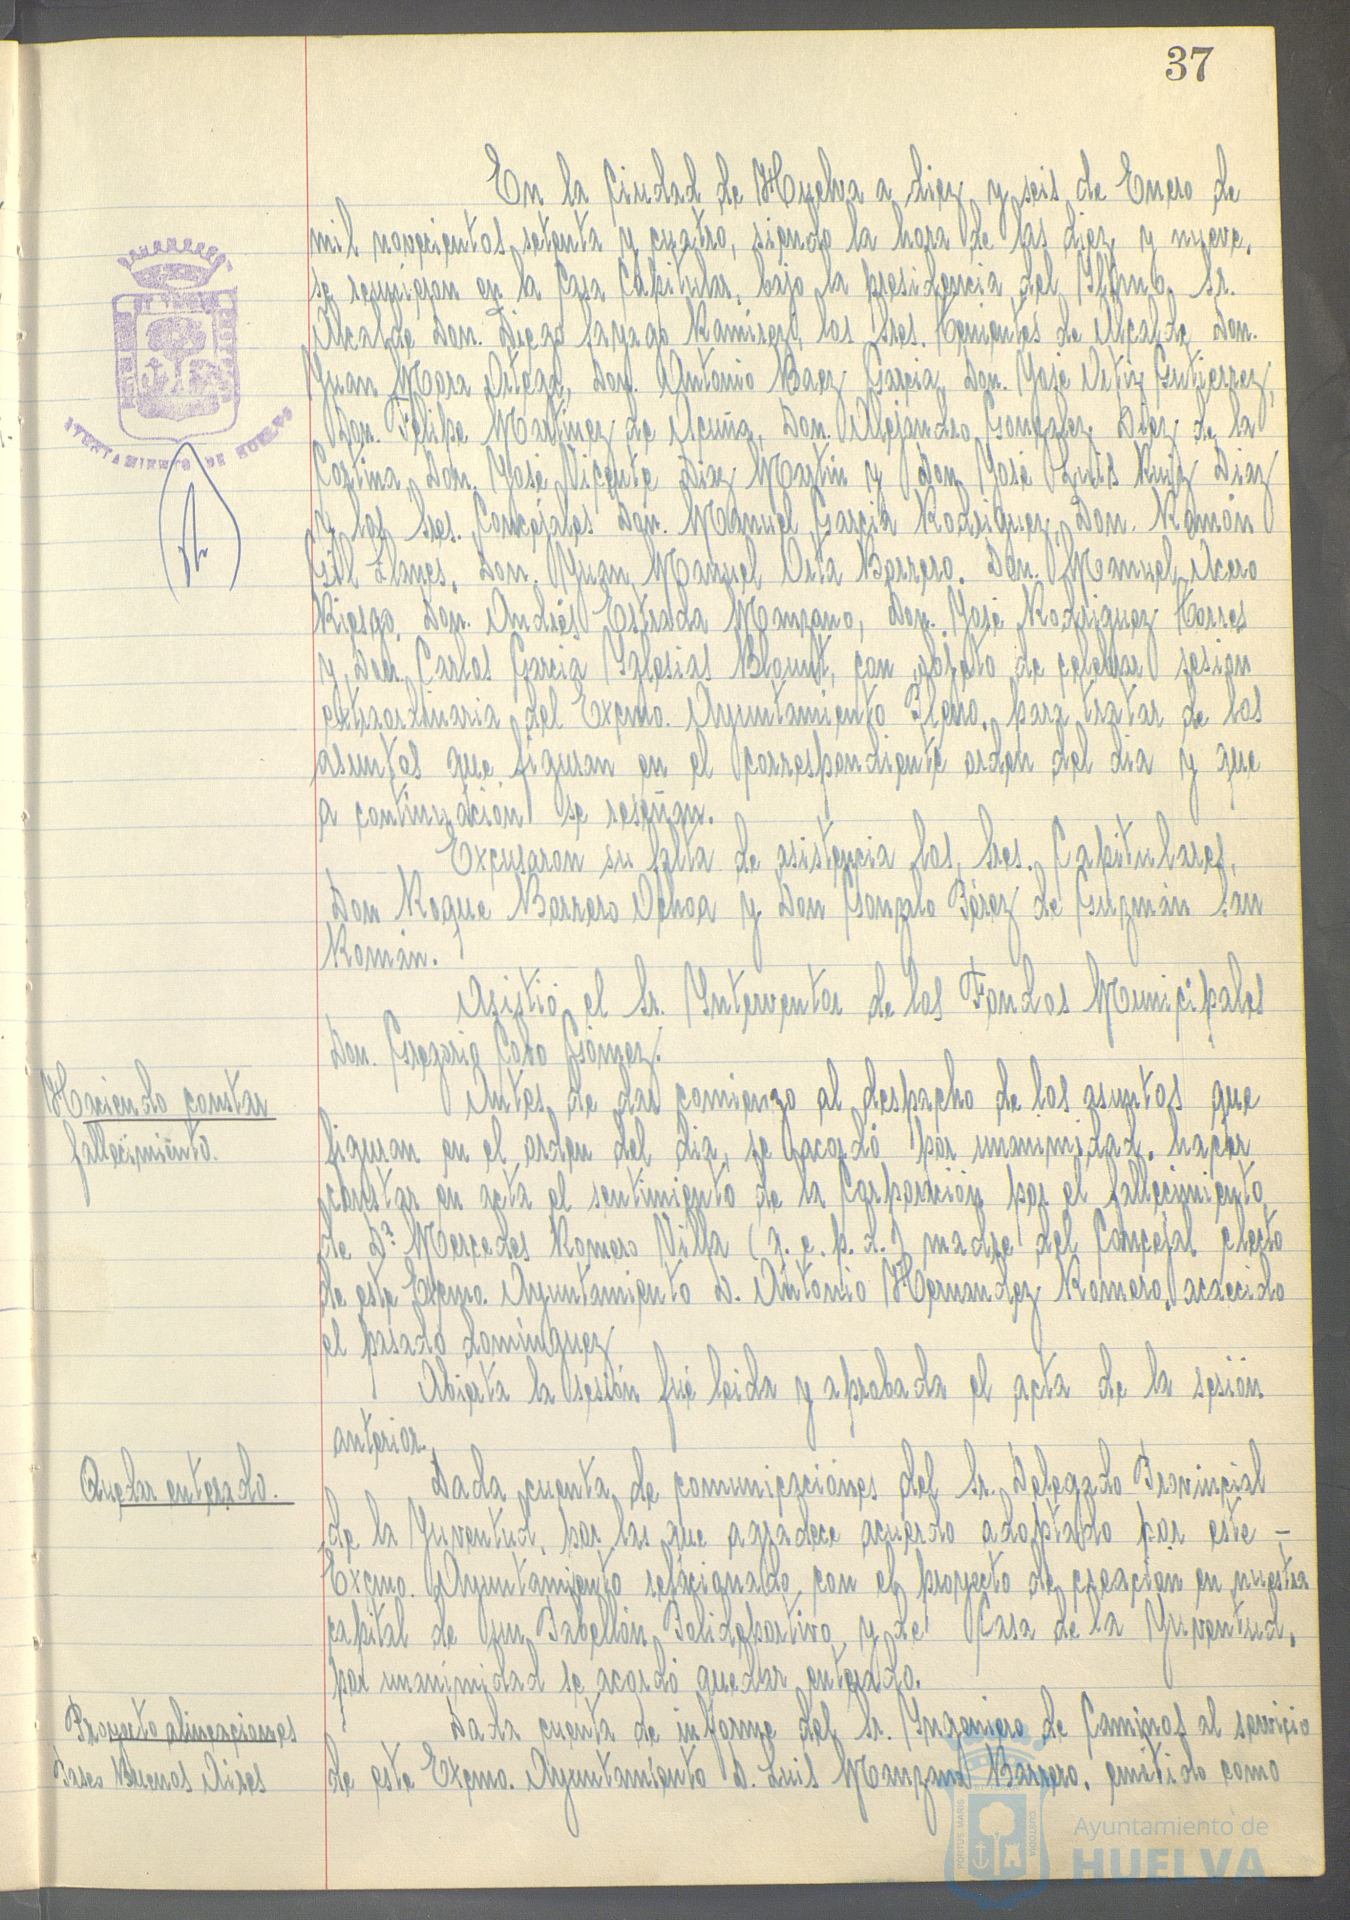 37
En la Ciudad de Huelva a diez y seis de Enero de
mil novecientos setenta y cuatro, siendo la hora de las diez y nueve,
se reunieron en la Casa Capitular, bajo la presidencia del Iltmo. Sr.
Alcalde Don. Diego Sayago Ramirez, los Sres. Tenientes de Alcalde Don.
Juan Mora Ortega, Don. Antonio Baez Garcia, Don. José Ortiz Gutierrez,
Don. Felipe Martinez de Acuña, Don. Alejandro Gonzalez Diez de la
Cortina, Don. José Vicente Diaz Martin y Don José Luis Ruiz Diaz
y los Sres. Concejales Don. Manuel Garcia Rodriguez, Don. Ramón
Gil Llanes, Don. Juan Manuel Orta Borrero, Don. Manuel Acero
Riesgo, Don. Andrés Estrada Manzano, Don. José Rodriguez Torres
y Don. Carlos Garcia Iglesias Blount, con objeto de celebrar sesion
extraordinaria del Excmo. Ayuntamiento Pleno, para tratar de los
asuntos que figuran en el correspondiente orden del dia y que
a continuación se reseñan.
Excusaron su falta de asistencia los Sres. Capitulares,
Don Roque Barrero Ochoa y Don Gonzalo Pérez de Guzmán San
Román.
Asistió el Sr. Interventor de los Fondos Municipales
Don. Gregorio Cobo Gómez.
Haciendo constar
fallecimiento.
Antes de dar comienzo al despacho de los asuntos que
figuran en el orden del dia, se acordó por unanimidad, hacer
constar en acta el sentimiento de la Corporación por el fallecimiento
de Dª Mercedes Romero Villa (q. e. p. d.) madre del Concejal electo
de este Excmo. Ayuntamiento D. Antonio Hernandez Romero, acaecido
el pasado dominguez
Abierta la sesión fué leida y aprobada el acta de la sesión
anterior.
Quedar enterado.
Dada cuenta de comunicaciónes del Sr. Delegado Provincial
de la Juventud, por las que agradece acuerdo adoptado por este -
Excmo. Ayuntamiento relacionado con el proyecto de creación en nuestra
capital de un Pabellón Polideportivo y de Casa de la Juventud,
por unanimidad se acordó quedar enterado.
Proyecto alineaciones
Paseo Buenos Aires
Dada cuenta de informe del Sr. Ingeniero de Caminos al servicio
de este Excmo. Ayuntamiento D. Luis Manzano Barrero, emitido como
AYUNTAMIENTO DE HUELVA
PORTUS MARIS
CUSTODIA
Ayuntamiento de
HUELVA